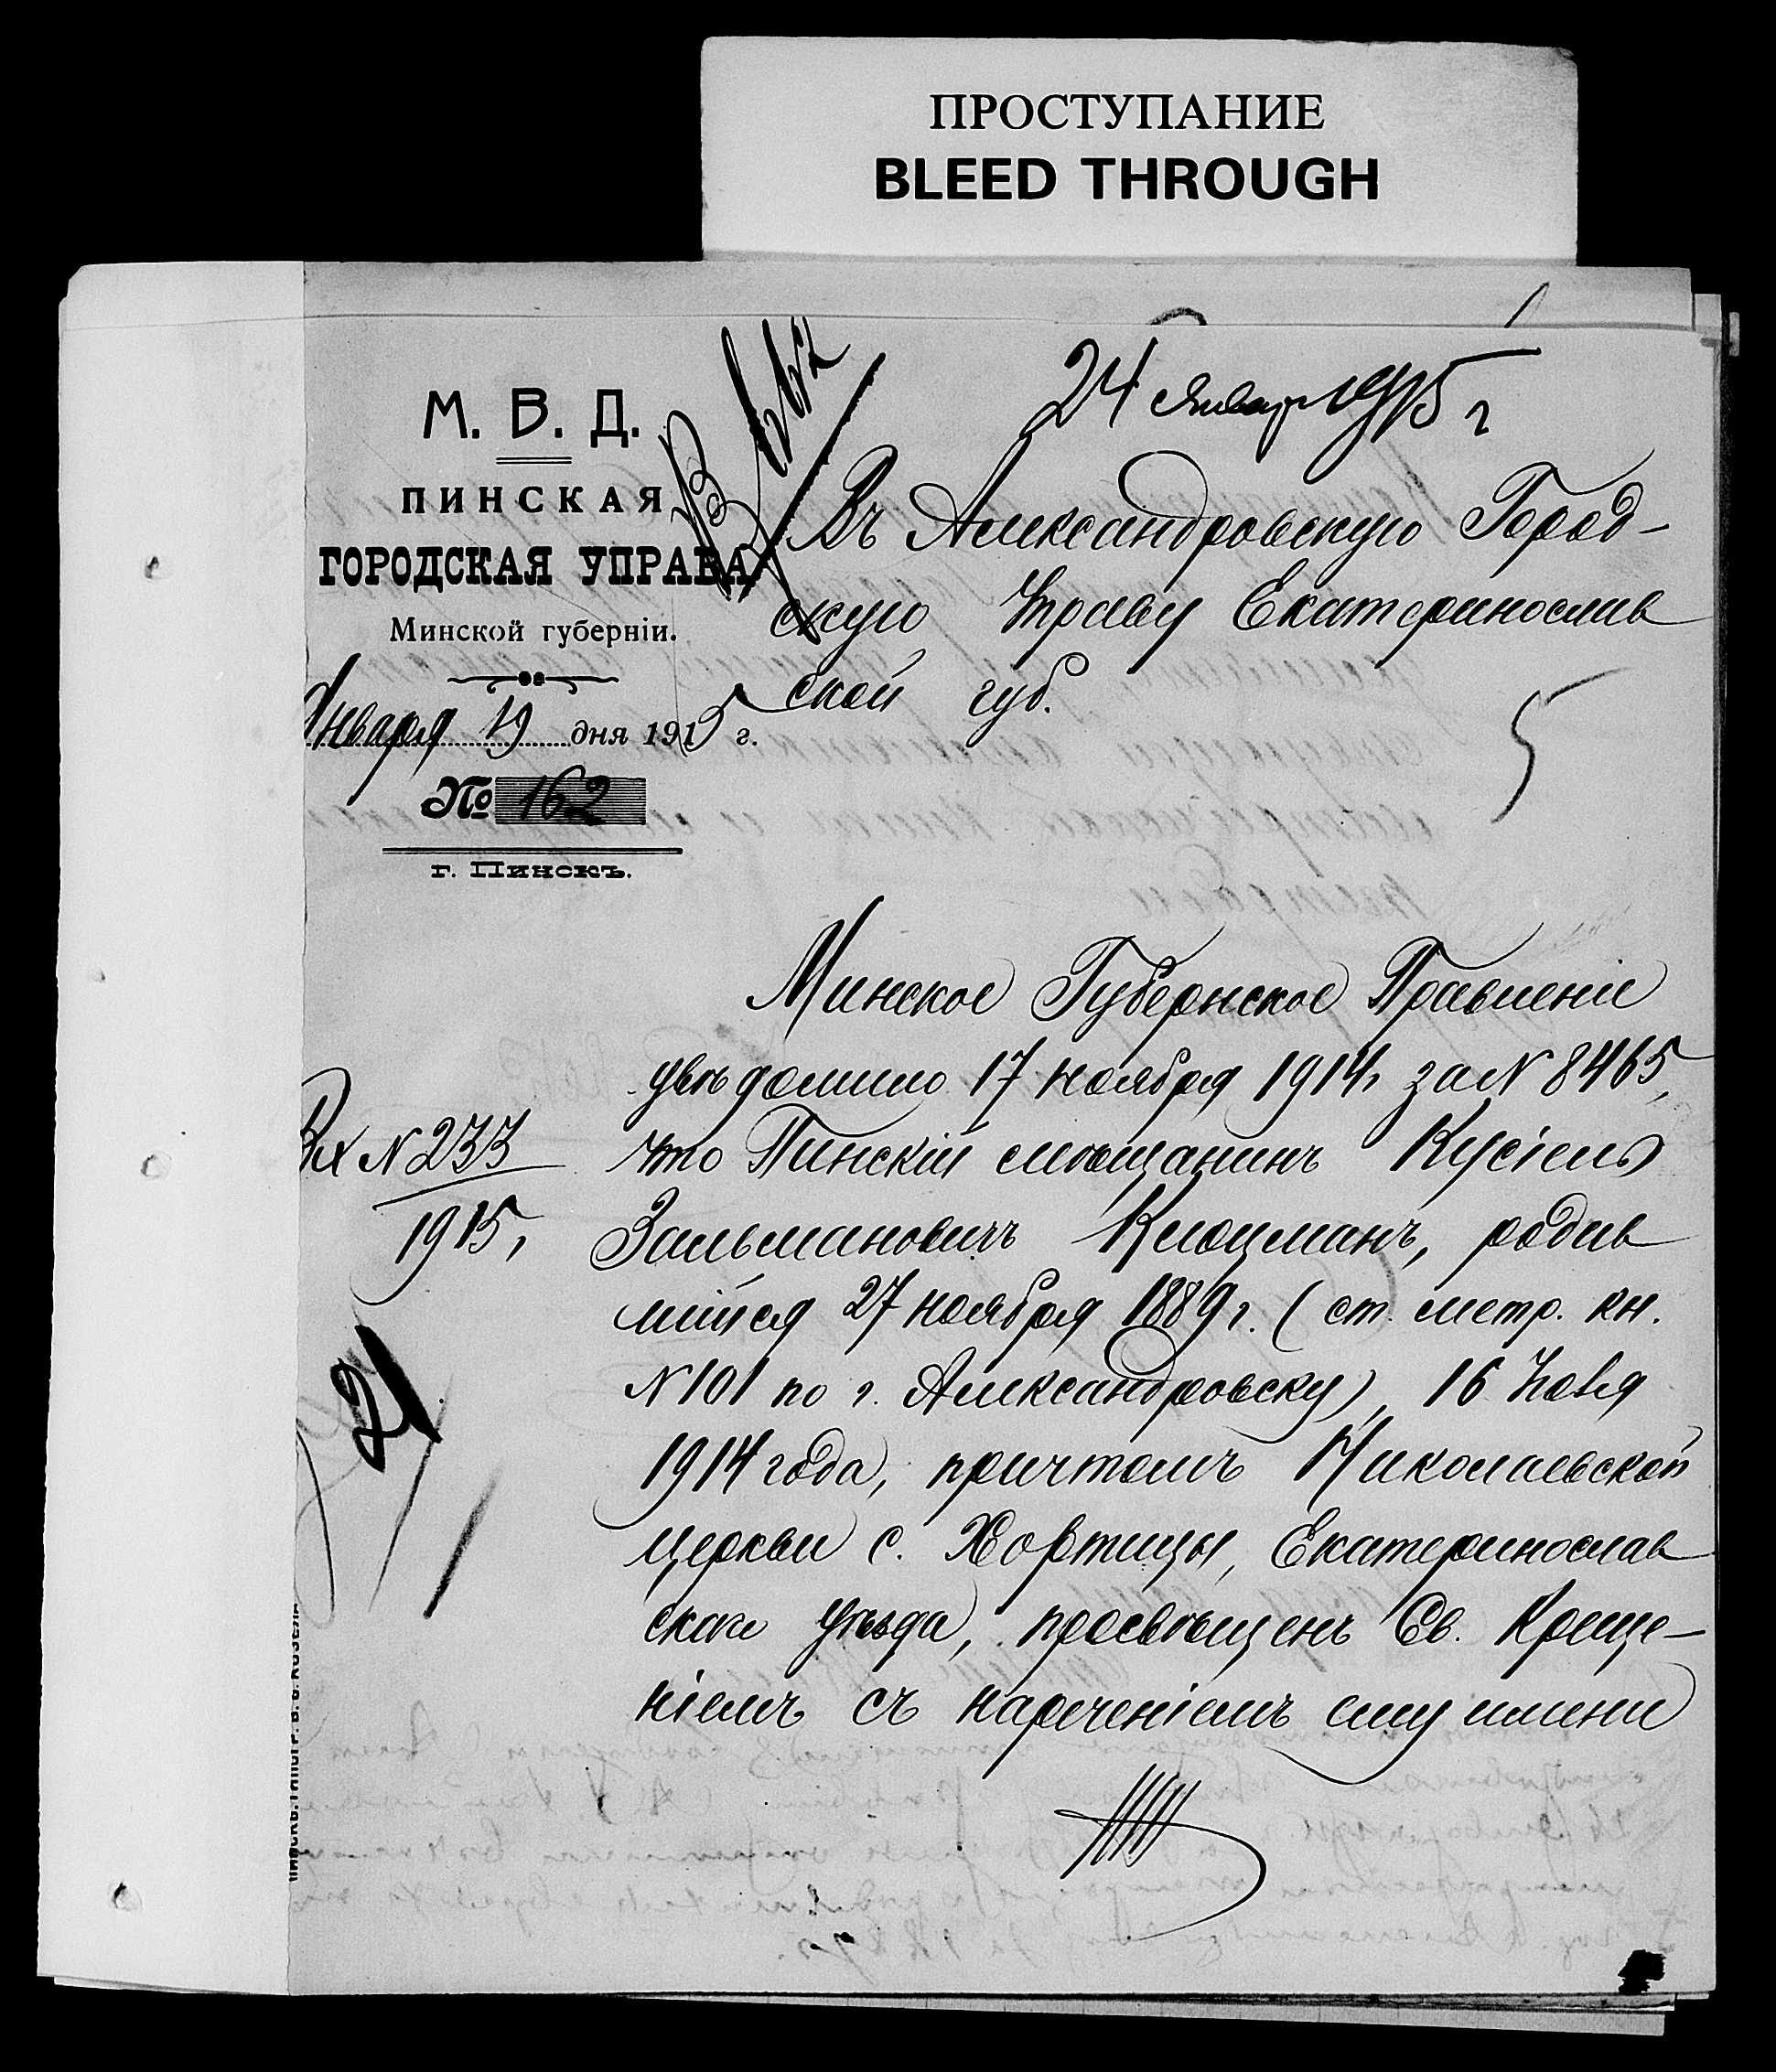 ПРОСТУПАНИЕ
BLEED THROUGH
М. В. Д.
ПИНСКАЯ
ГОРОДСКАЯ УПРАВА
Минской губерніи.
Января 19 дня 1915 г.
№ 162
г. Пинскъ.
24 Января 1915 г
Въ Александровскую Город-
скую Управу Екатеринослав
ской губ.
5
Минское Губернское Правленіе
увѣдомило 17 ноября 1914 за N 8465,
что Пинскій мѣщанинъ Кусіель
Зальмановичъ Клоцманъ, родив
шійся 27 ноября 1889 г. (ст. метр. кн.
N 101 по г. Александровску), 16 Іюля
1914 года, причтомъ Николаевской
церкви с. Хортицы, Екатеринослав
скаго уѣзда, просвѣщенъ Св. Креще-
ніемъ съ нареченіемъ ему имени
Вх N 233
1915,
21